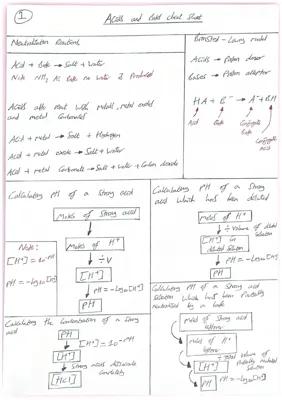 1
Acids and Bases cheat sheet
Neutralisation Reactions
Acid + Base → Salt + Water
Note NH3 as Base no water is Produced
Acids also react with metals, metal oxides
and metal carbonates
Acid + metal → Salt + Hydrogen
Acid + metal oxide → Salt + water
Acid + metal Carbonate → Salt + water + Carbon dioxide
Bronsted - Lowry model
Acids → Proton donor
Bases → Proton acceptor
HA + B⁻ → A⁻ + BH
Acid
Base
Conjugate
Base
Conjugate
Acid
Calculating PH of a strong acid
Moles of strong acid
Moles of H⁺
÷V
[H⁺]
PH = -Log10[H]
PH
Note:
[H⁺] = 10^-PH
PH = -Log10[H]
Calculating PH of a Strong
acid which has been diluted
moles of H⁺
÷ Volume of diluted
solution
[H⁺] in
diluted Solution
PH = -Log10[H]
PH
Calculating the Concentration of a Strong
acid
PH
[H⁺] = 10^-PH
[H⁺]
Strong acids dissociate
completely
[HCl]
Calculating PH of a Strong acid
Solution which has been Partially
neutralised by a base
moles of Strong acid
leftover
moles of H⁺
leftover
÷ total volume of
Partially neutralised
Solution
[H⁺]
PH = -Log10[H]
PH